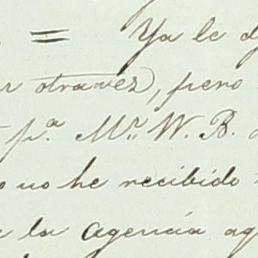 = Ya le d
r otravez), pero
pª. Mr. W. B.
o no he recibido
a la agencia ag